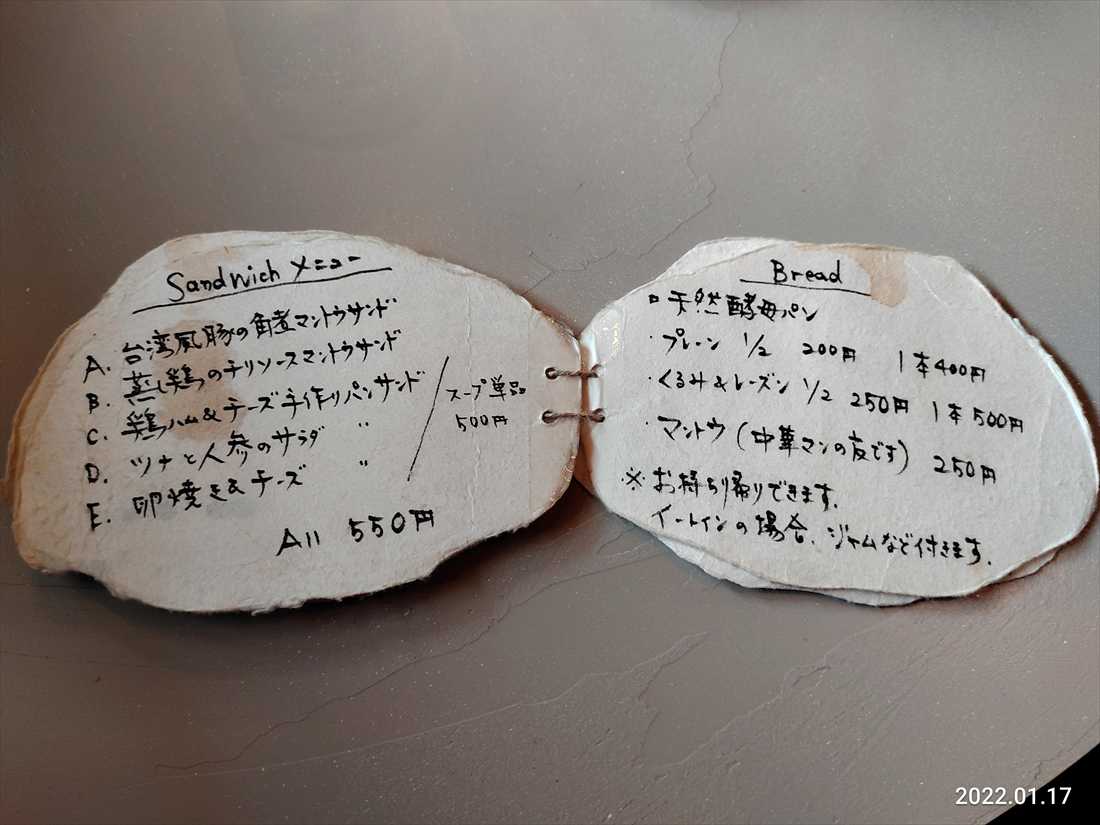 Sandwich メニュー
A. 台湾風豚の角煮マントウサンド
B. 蒸し鶏のチリソースマントウサンド
C. 鶏ハム&チーズ手作りパンサンド
D. ツナと人参のサラダ 〃
E. 卵焼き&チーズ 〃
All 550円
スープ単品
500円
Bread
天然酵母パン
・プレーン 1/2 200円 1本400円
・くるみ&レーズン 1/2 250円 1本500円
・マントウ(中華マンの友です) 250円
※お持ち帰りできます。
イートインの場合、ジャムなど付きます。
2022.01.17